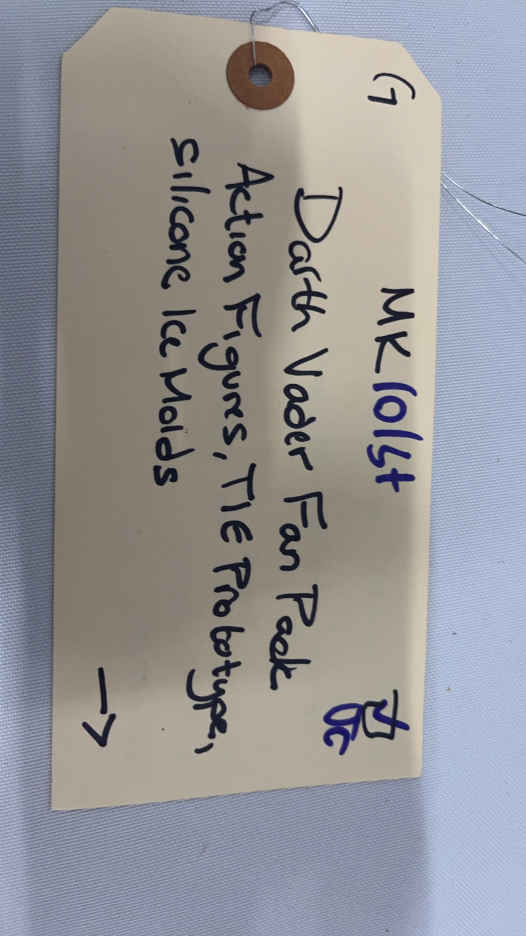 G MK101st
Darth Vader Fan Pack
Action Figures, TIE Prototype,
Silicone Ice Molds